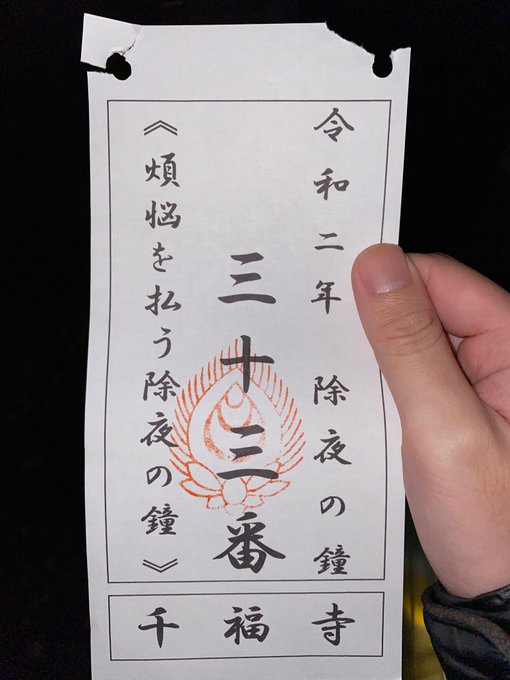 令和二年 除夜の鐘
三十三番
《煩悩を払う除夜の鐘》
千福寺